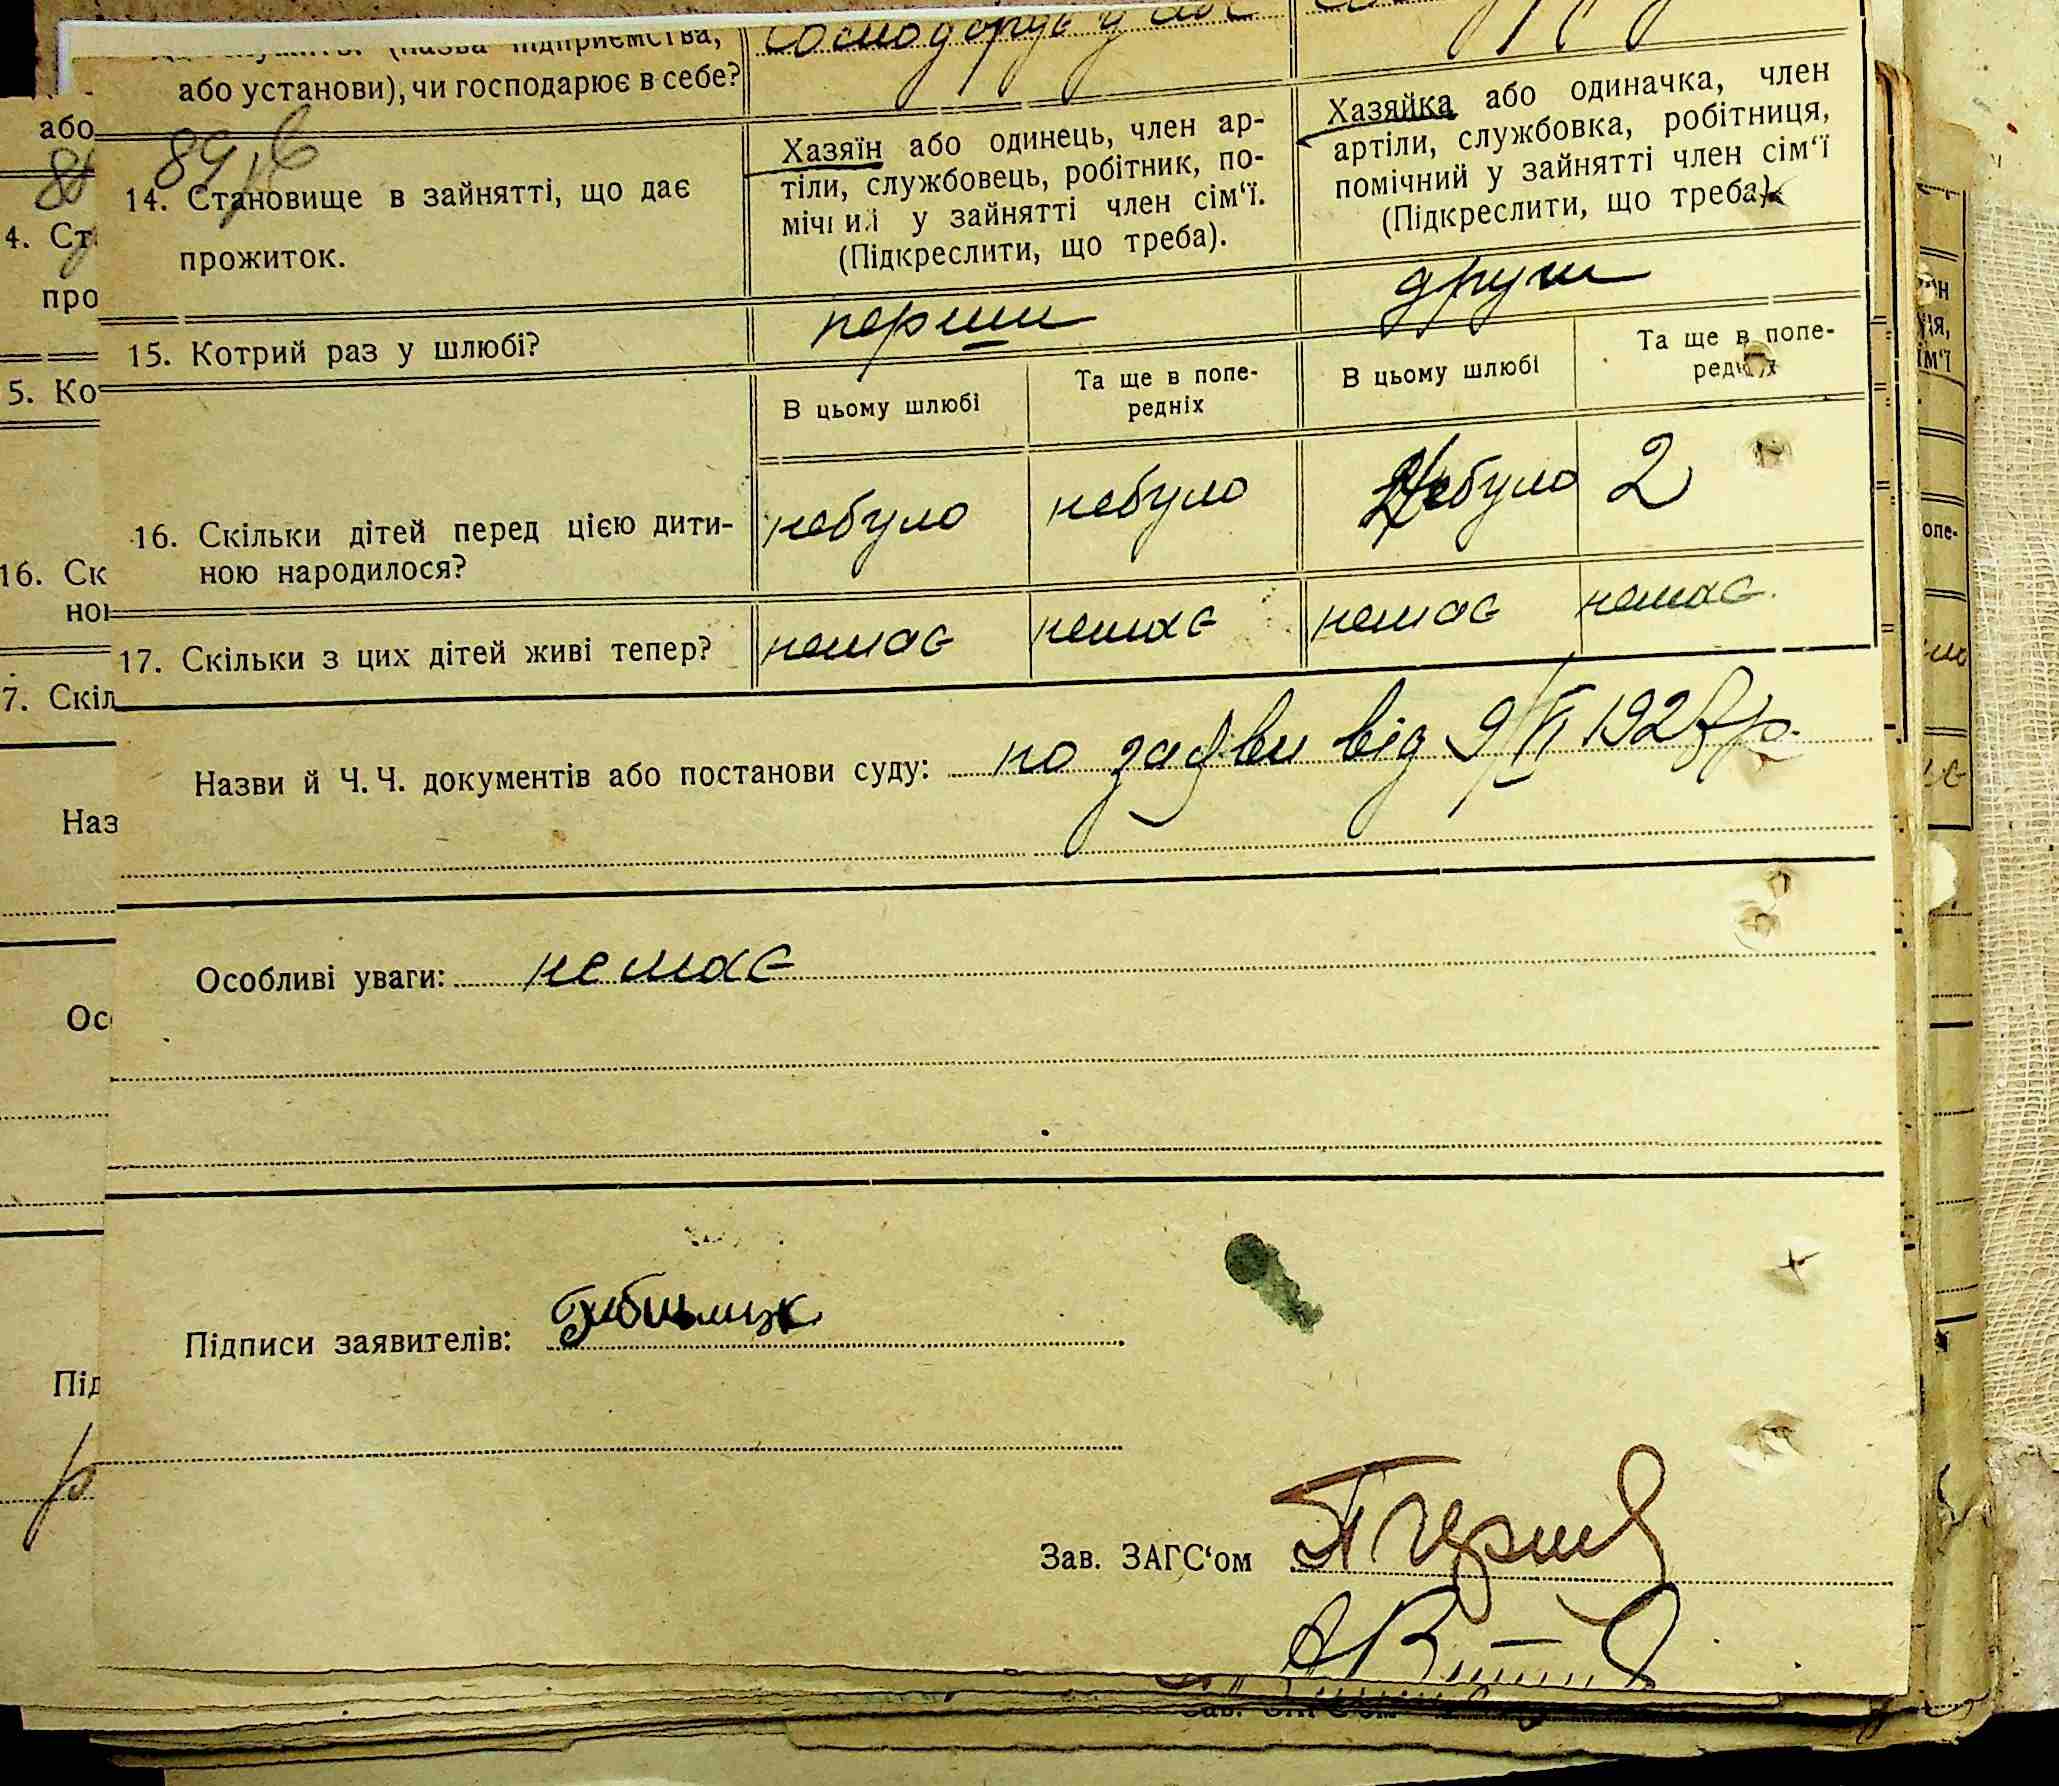 або установи), чи господарює в себе?
84
14. Становище в зайнятті, що дає
прожиток.
Хазяїн або одинець, член ар-
тіли, службовець, робітник, по-
мічний у зайнятті член сім‘ї.
(Підкреслити, що треба).
Хазяйка або одиначка, член
артіли, службовка, робітниця,
помічний у зайнятті член сім‘ї
(Підкреслити, що треба).
15. Котрий раз у шлюбі?
перши
други
В цьому шлюбі
Та ще в попе-
редніх
В цьому шлюбі
Та ще в попе-
редніх
16. Скільки дітей перед цією дити-
ною народилося?
небуло
небуло
небуло
2
17. Скільки з цих дітей живі тепер?
немає
немає
немає
немає
Назви й Ч. Ч. документів або постанови суду: по заяви від 9/VI 1927 р.
Особливі уваги: немає
Підписи заявителів:
Зав. ЗАГС‘ом
або
4. Ст
про
5. Ко
16. Ск
ною
7. Скіл
Наз
Осо
Під